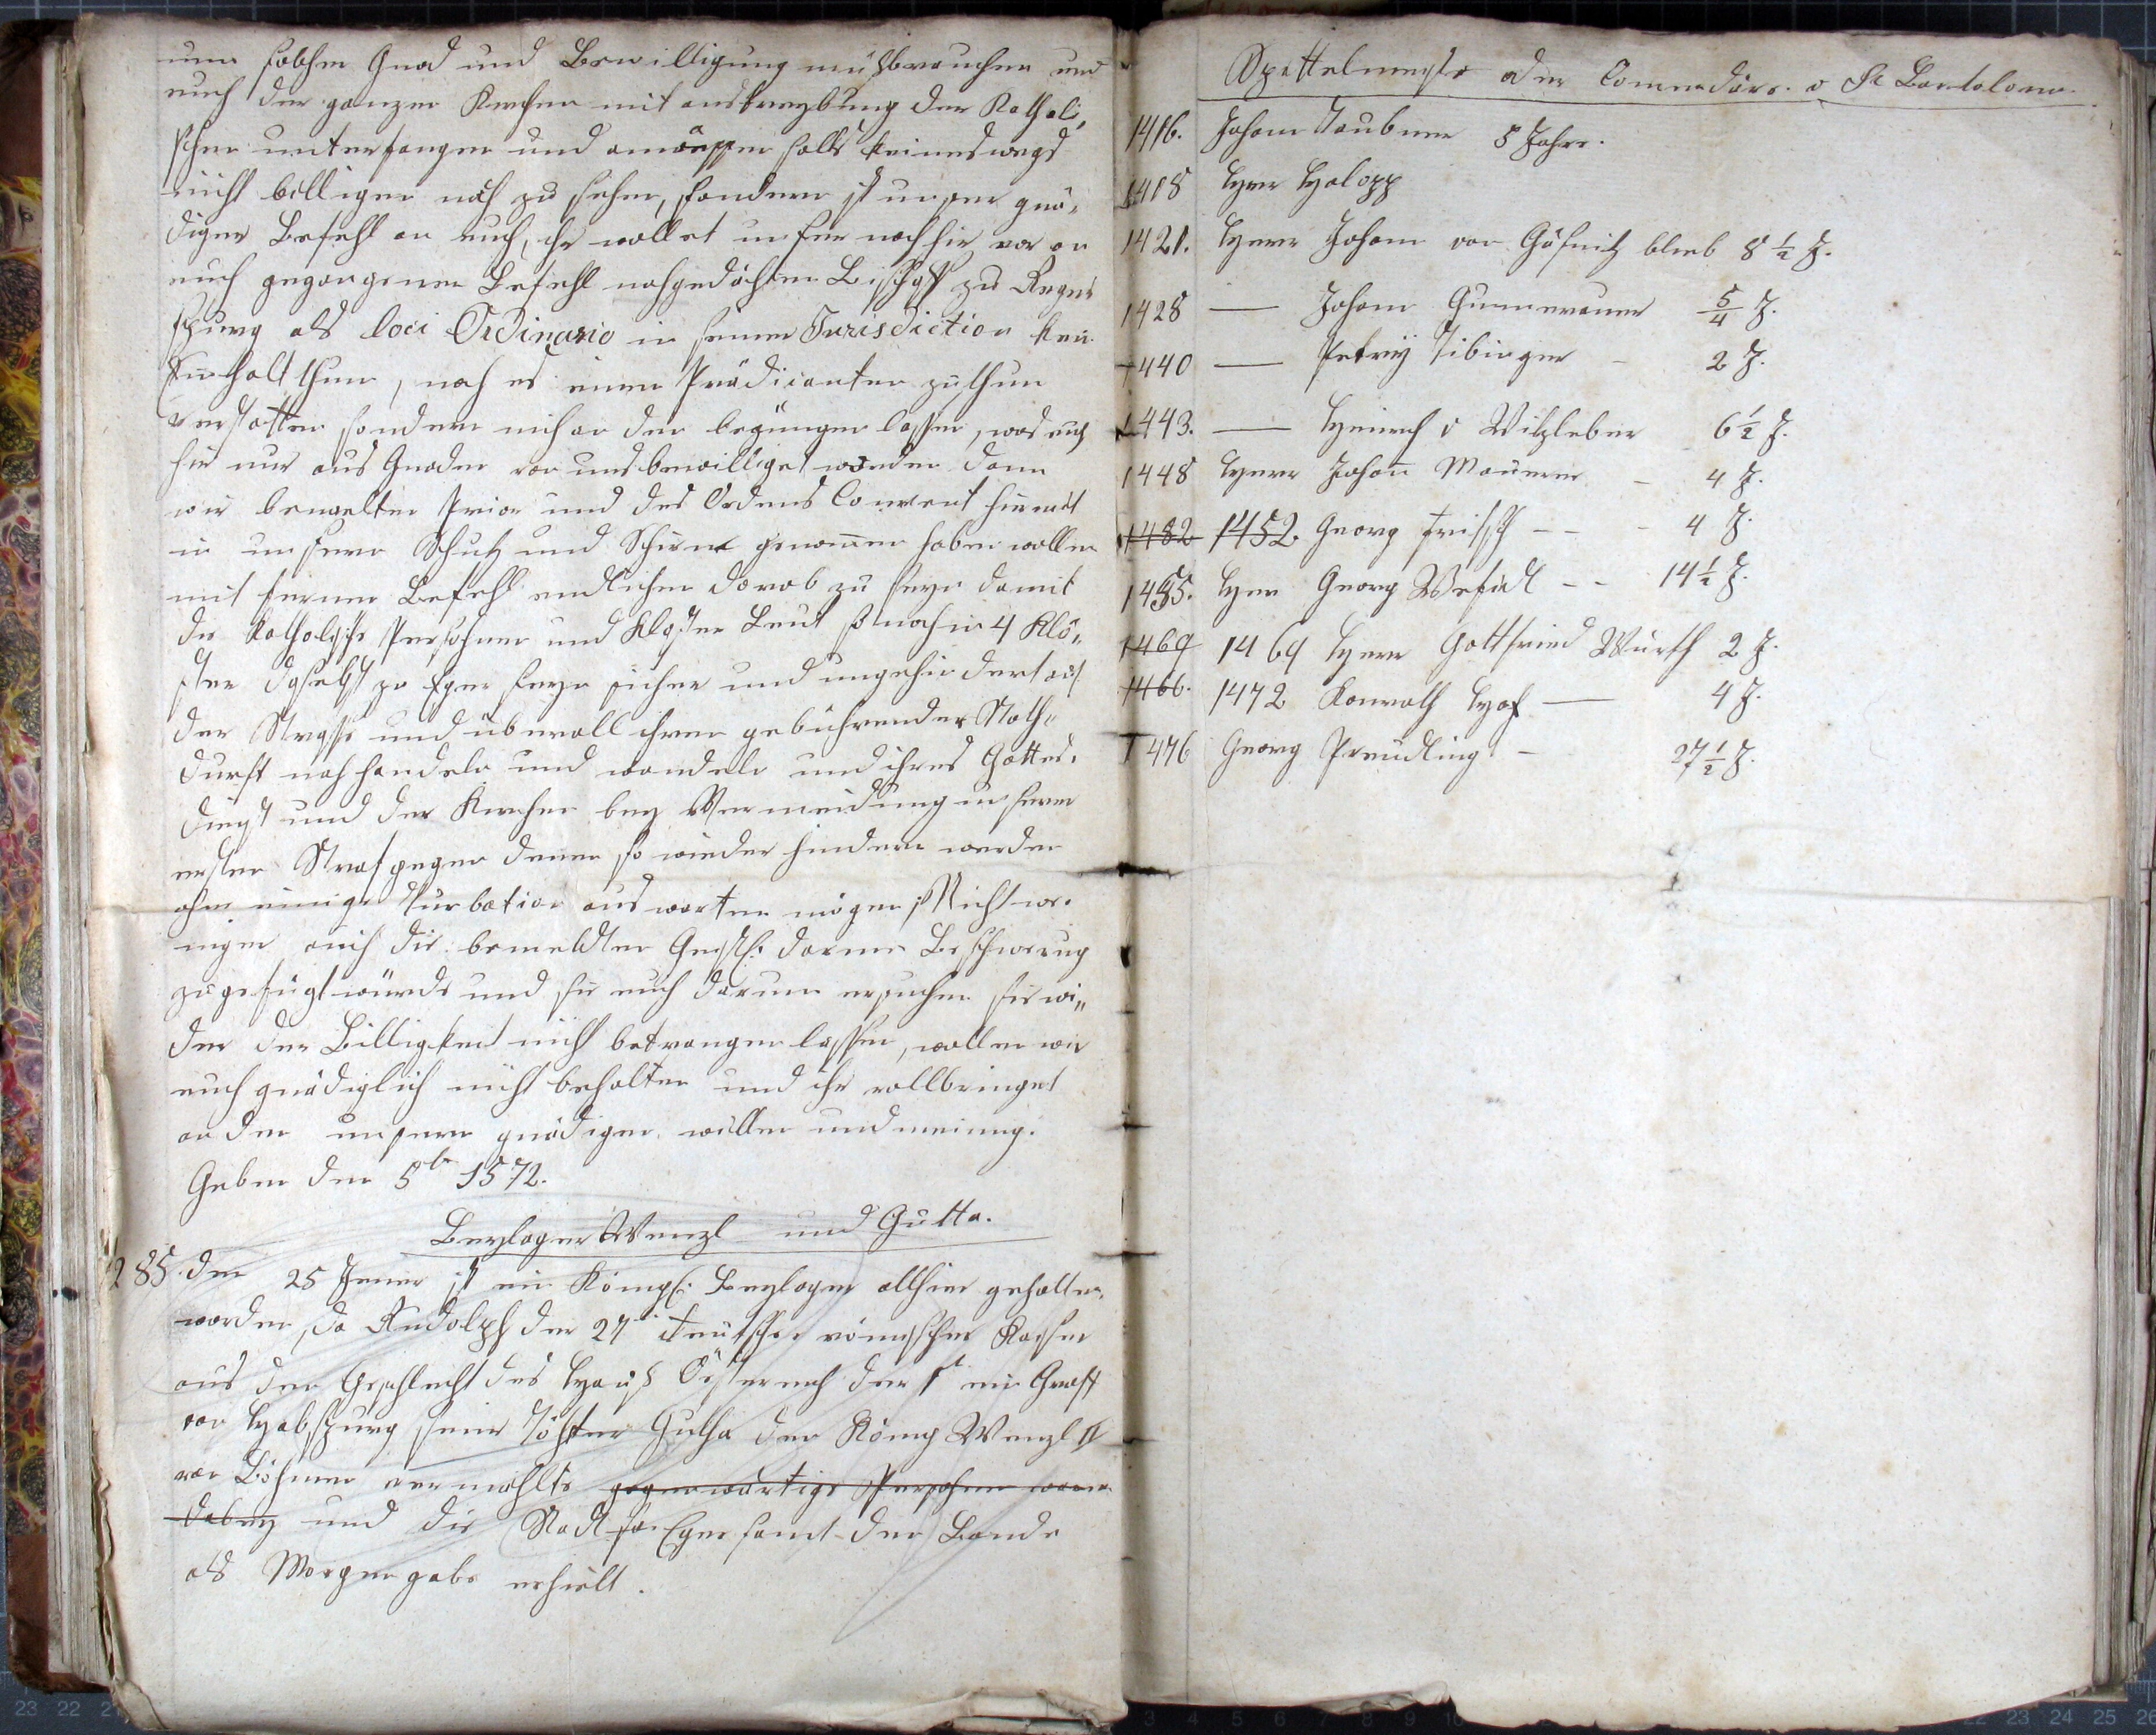 nun solchen Gnad und Bewilligung mißbrauchen und
euch der ganzen Kirchen mit austreybung der Katholi„
schen unterfangen und anmaßen sollt keineswegs
nicht billigen noch zu sehen, sondern ist unser gnä„
diger Befehl an euch, ihr wollet unser noch hie vor an
euch gegangenen Befehl nachgedachten Bischoff zu Regen
spurg als loci Ordinario in seiner Jurisdiction kein
Einhalt thun, noch es einen Prädicanten zu thun
verstatten sondern nich an den begnügen lassen, was euch
hie nur aus Gnaden von uns bewilliget worden dann
wir bemelten Prior und des Ordens Convent hiemit
in unsern Schutz und Schirm genommen haben wollen
mit fernern Befehl endlichen darob zu seyn damit
die Katholische Persohnen und Kloster Leut so noch in 4 Klö„
ster daselbst zu Eger seyn sicher und ungehindert auf
der Strasse und überall ihrer gebührender Noth„
durft nach handeln und wandeln und ihres Gottes„
dienst und der Kirchen bey Vermeidung unserer
ersten Straf gegen denen so wieder hindern werden
ohne einige Turbation auswarten mögen, Nicht we„
niger auch die bemeldten Geistl: darinn Beschwerung
zugefügt würde und sie euch darum ersuchen sie wi„
der der Billigkeit nicht betrangen lassen, wollen wir
euch gnädiglich nicht behalten und ihr vollbringet
an dem unsern gnädigen willen und meinung.
Geben den 5t 1572.
Beylager Wenzl und Gutta.
285. den 25 Jener ist ein Königl: Beylager allhier gehalten
worden, da Rudolph der 27 teutsche römischer Kayser
aus den Geschlecht des Hauß Österreich der 1t ein Graff
von Habspurg seine Töchter Gutha den König Wenzl II
von Böhmen vermählte gegenwärtige Persohnen waren
dabey und die Stadt Eger samt den Lande
als Morgengabe erhielt.
Spittelmeyste oder Comendäre. v St Bartolome.
1416. Johann Taubner 5 Jahre.
1418 Herr Holopp
1421. Herr Johann von Gäßnitz blieb 8 1/2 J.
1428 — Johann Gummerauer 5/4 J.
1440 — Petrij Tibinger - 2 J.
1443. — Heinrich v Witzleben 6 1/2 J.
1448 Herr Johann Maurer - 4 J.
1482 1452. Georg Frisch - - - 4 J.
1455. Herr Georg Wefidl - - 14 1/2 J.
1469 1469 Herr Gottfried Würth 2 J.
1466. 1472 Konrath Hof — 4 J.
1476 Georg Preudling - 27 1/2 J.